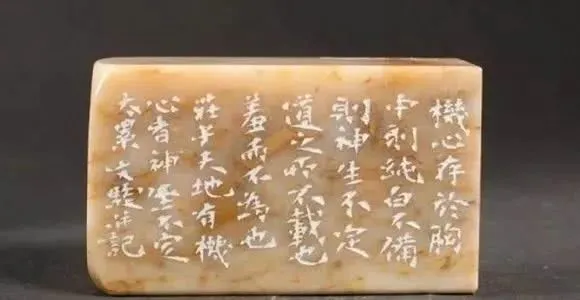 機心存於胸
中則純白不備
則神生不定
道之所不載也
羞而不為也
莊子天地有機
心者神生不定
太累 文 記